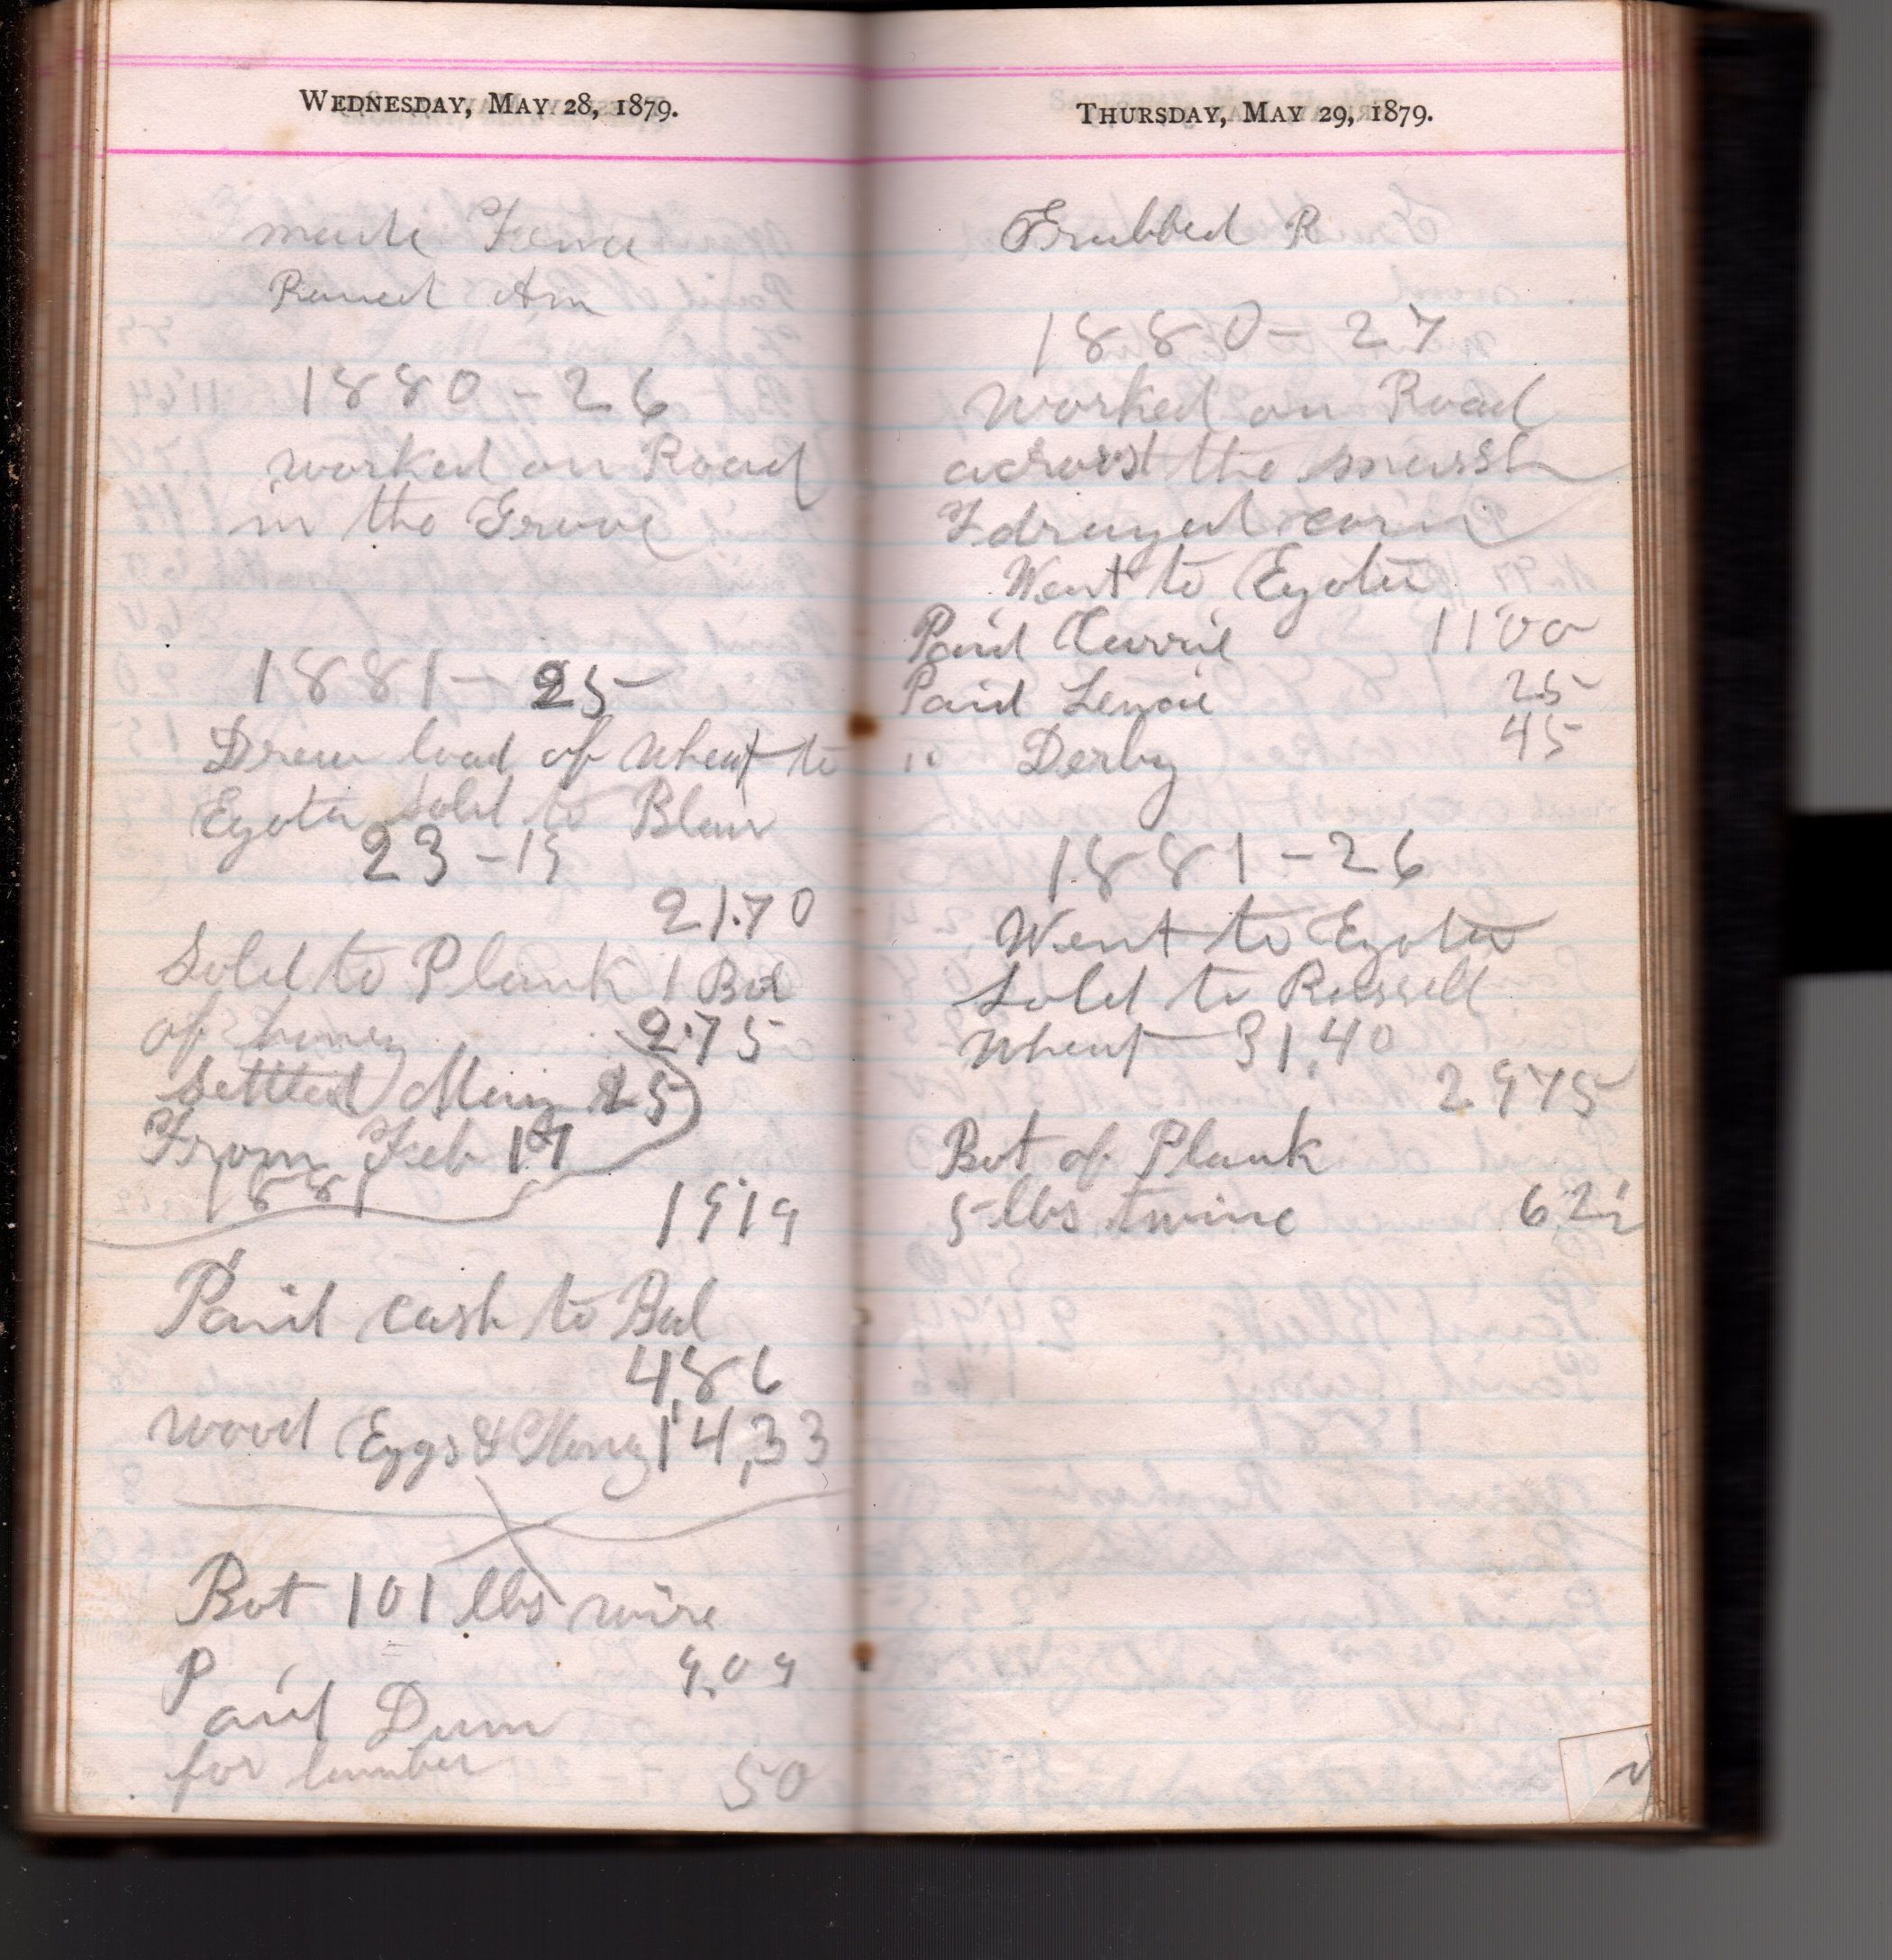 WEDNESDAY, MAY 28, 1879.
made Fence
Rained Am
1880 - 26
worked on Road
in the Grove
1881 - 25
Drew load of wheat to
Eyota Sold to Blair
23 - 15
21.70
Sold to Plank 1 Box
of honey 2.75
Settled May 25
From Feb 17
1881
19.19
Paid cash to Bal
4,86
wood Eggs & Honey 14,33
Bot 101 lbs wire
9.09
Paid Dunn
for lumber 50
THURSDAY, MAY 29, 1879.
Grubbed R
1880 - 27
Worked on Road
acrost the marsh
F draged corn
Went to Eyota
Paid 11 00
Paid 25
" Derby 45
1881 - 26
Went to Eyota
Sold to Russell
Wheat 31,40
29 75
Bot of Plank
5 lbs twine 62½